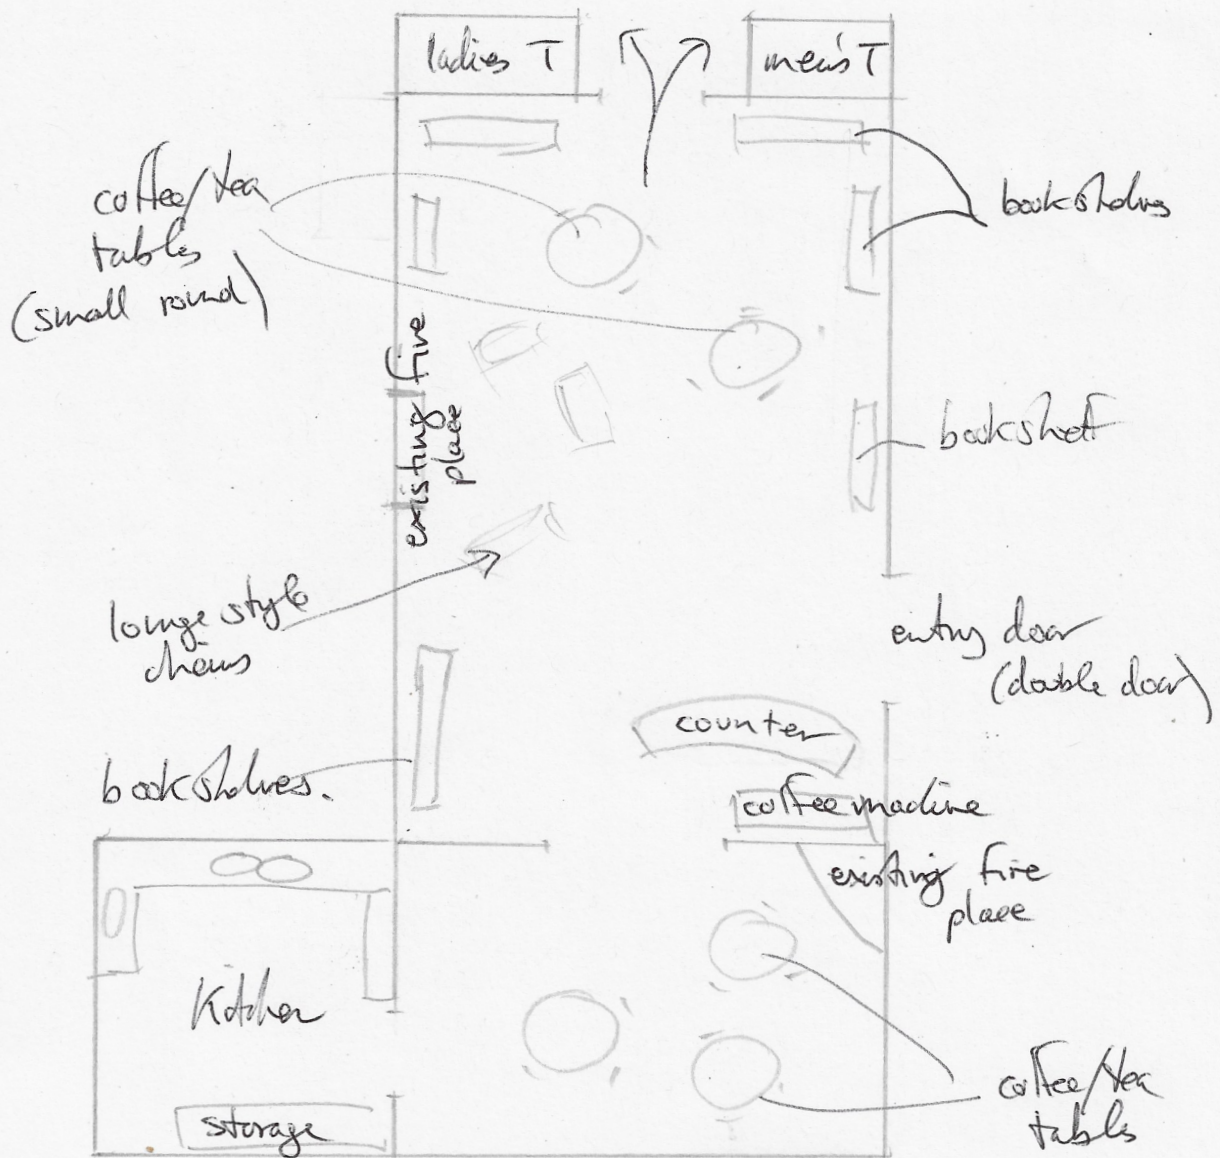 ladies T
men's T
coffee/tea
tables
(small round)
bookshelves
existing fire
place
bookshelf
lounge style
chairs
entry door
(double door)
counter
bookshelves.
coffee machine
existing fire
place
Kitchen
storage
coffee/tea
tables